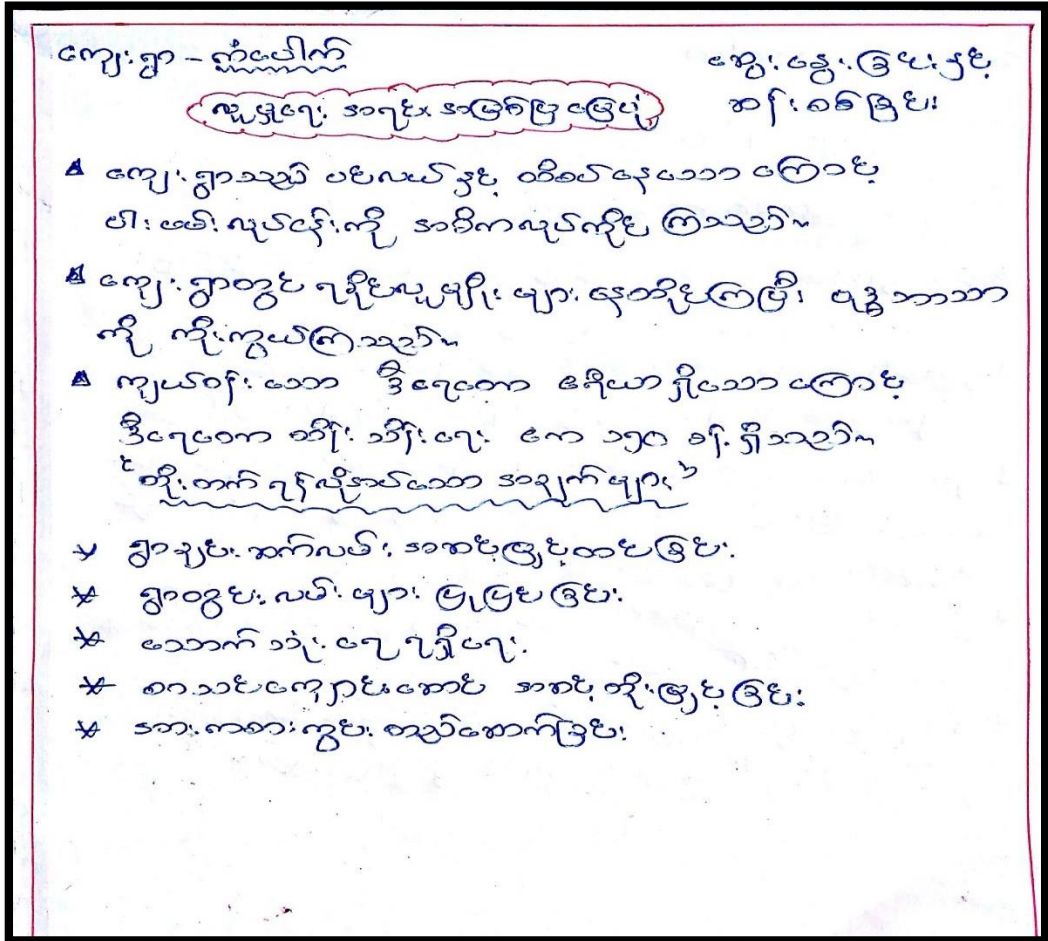 ကျေးရွာ - ကံပေါက်
ဆွေးနွေးခြင်းနှင့်
လူမှုရေး အရင်းအမြစ်ပြ မြေပုံ
ဆန်းစစ်ခြင်း
ကျေးရွာသည် ပင်လယ်နှင့် ထိစပ်နေသောကြောင့်
ငါးဖမ်းလုပ်ငန်းကို အဓိကလုပ်ကိုင်ကြသည်။
ကျေးရွာတွင် ရခိုင်လူမျိုးများ နေထိုင်ကြပြီး ဗုဒ္ဓဘာသာ
ကို ကိုးကွယ်ကြသည်။
ကျယ်ဝန်းသော ဒီရေတော ဧရိယာရှိသောကြောင့်
ဒီရေတော ထိန်းသိမ်းရေး ဧက ၁၅၀ ခန့်ရှိသည်။
"တိုးတက်ရန်လိုအပ်သော အချက်များ"
ရွာချင်းဆက်လမ်း အဆင့်မြှင့်တင်ခြင်း
ရွာတွင်းလမ်းများ ပြုပြင်ခြင်း
သောက်သုံးရေ ရရှိရေး
စာသင်ကျောင်းဆောင် အဆင့်တိုးမြှင့်ခြင်း
အားကစားကွင်း တည်ဆောက်ခြင်း